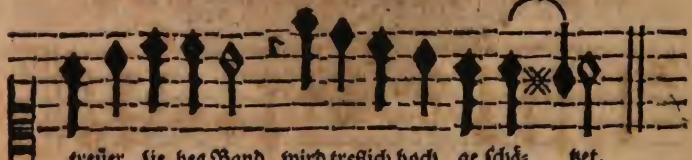 treüer lie bes Band wird treflich hoch ge schä- tzet.